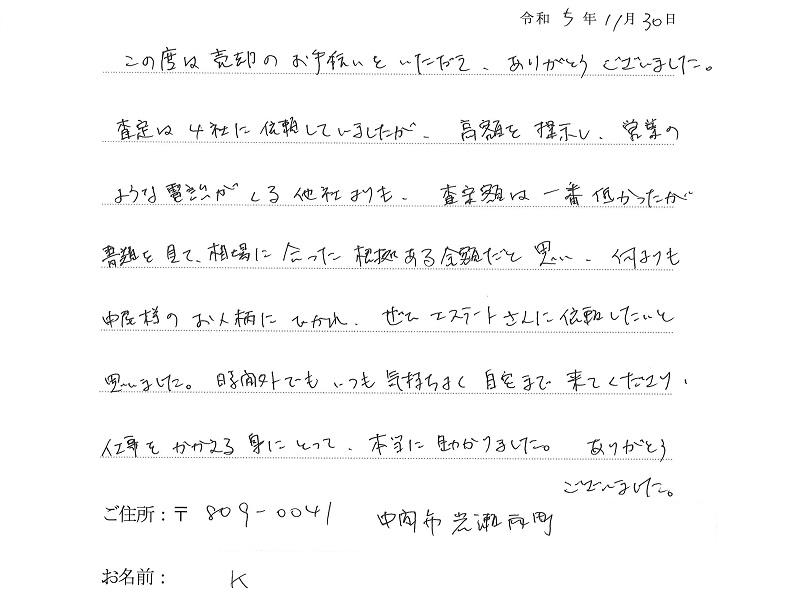 令和 5 年 11月 30日
この度は 売却の お手伝いを いただきて、ありがとう ございました。
査定は 4社に 依頼していましたが、高額を 提示し、営業の
ような 電話が くる 他社よりも、査定額は 一番 低かったが
書類を 見て、相場に 合った 根拠ある金額だと 思い、何よりも
中尾様の お人柄に ひかれ、ぜひ エステートさんに 依頼したいと
思いました。時間外でも いつも 気持ちよく 自宅まで 来てくださり、
仕事を かかえる 身にとって、本当に 助かりました。ありがとう
ございました。
ご住所：〒 809-0041 中間市 岩瀬西町
お名前： K